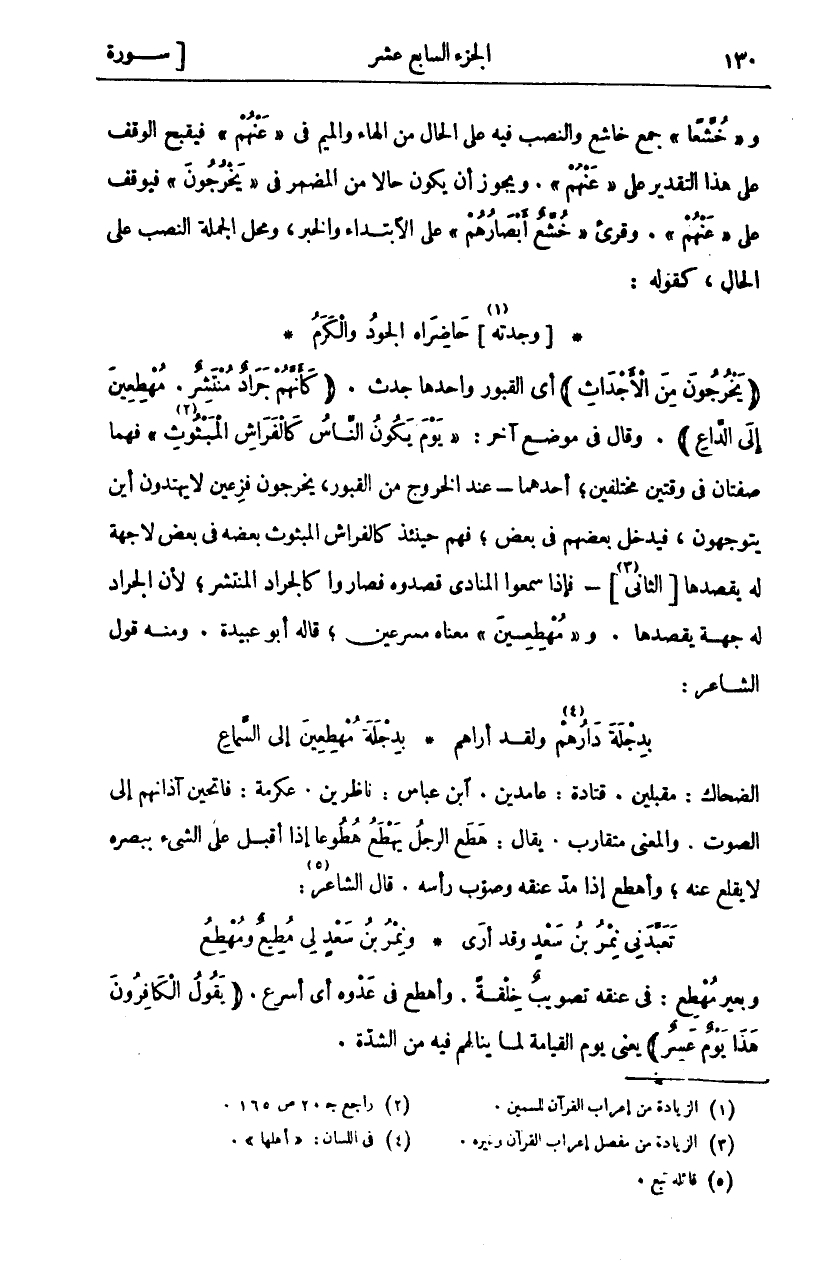 ١٣٠ الجزء السابع عشر [ سـورة
و « خُشَّعًا » جمع خاشع والنصب فيه على الحال من الهاء والميم فى « عَنْهُمْ » فيقبح الوقف
على هذا التقدير على « عَنْهُمْ » . ويجوز أن يكون حالا من المضمر فى « يَخْرُجُونَ » فيوقف
على « عَنْهُمْ » . وقرئ « خُشَّعٌ أَبْصَارُهُمْ » على الأبتـداء والخبر ، ومحل الجملة النصب على
الحال ، كقوله :
* [ وجدته ](١) حَاضِرَاه الجودُ والْكَرَمُ *
﴿ يَخْرُجُونَ مِنَ الْأَجْدَاثِ ﴾ أى القبور واحدها جدث . ﴿ كَأَنَّهُمْ جَرَادٌ مُنْتَشِرٌ . مُهْطِعِينَ
إِلَى الدَّاعِ ﴾ . وقال فى موضـع آخر : « يَوْمَ يَكُونُ النَّاسُ كَالْفَرَاشِ الْمَبْثُوثِ »(٢) فهما
صفتان فى وقتين مختلفين ؛ أحدهما — عند الخروج من القبور، يخرجون فزِعين لا يهتدون أين
يتوجهون ، فيدخل بعضهم فى بعض ؛ فهم حينئذ كالفراش المبثوث بعضه فى بعض لا جهة
له يقصدها [ الثانى(٣) ] — فإذا سمعوا المنادى قصدوه فصاروا كالجراد المنتشر ؛ لأن الجراد
له جهـة يقصدها . و « مُهْطِعِـينَ » معناه مسرعين ؛ قاله أبو عبيدة . ومنـه قول
الشـاعر :
بِدِجْلَةَ دَارُهُمْ(٤) ولقـد أراهم * بِدِجْلَةَ مُهْطِعِينَ إلى السَّماعِ
الضحاك : مقبلين . قتادة : عامدين . آبن عباس : ناظرين . عكرمة : فاتحين آذانهم إلى
الصوت . والمعنى متقارب . يقال : هَطَع الرجلُ يَهْطَعُ هُطُوعا إذا أقبـل على الشىء ببصره
لا يقلع عنه ؛ وأهطع إذا مدّ عنقه وصوّب رأسه . قال الشاعر(٥) :
تَعَبَّدَنِي نِمْرُ بنُ سَعْدٍ وقد أَرَى * ونِمْرُ بنُ سَعْدٍ لِي مُطِيعٌ ومُهْطِعُ
وبعير مُهْطِع : فى عنقه تصويبٌ خِلْقـةً . وأهطع فى عَدْوه أى أسرع . ﴿ يَقُولُ الْكَافِرُونَ
هَذَا يَوْمٌ عَسِرٌ ﴾ يعنى يوم القيامة لمـا ينالهم فيه من الشدّة .
(١) الزيادة من إعراب القرآن للسمين . (٢) راجع جـ ٢٠ ص ١٦٥ .
(٣) الزيادة من مفصل إعراب القرآن وغيره . (٤) فى اللسان : « أهلها » .
(٥) قائله تبع .